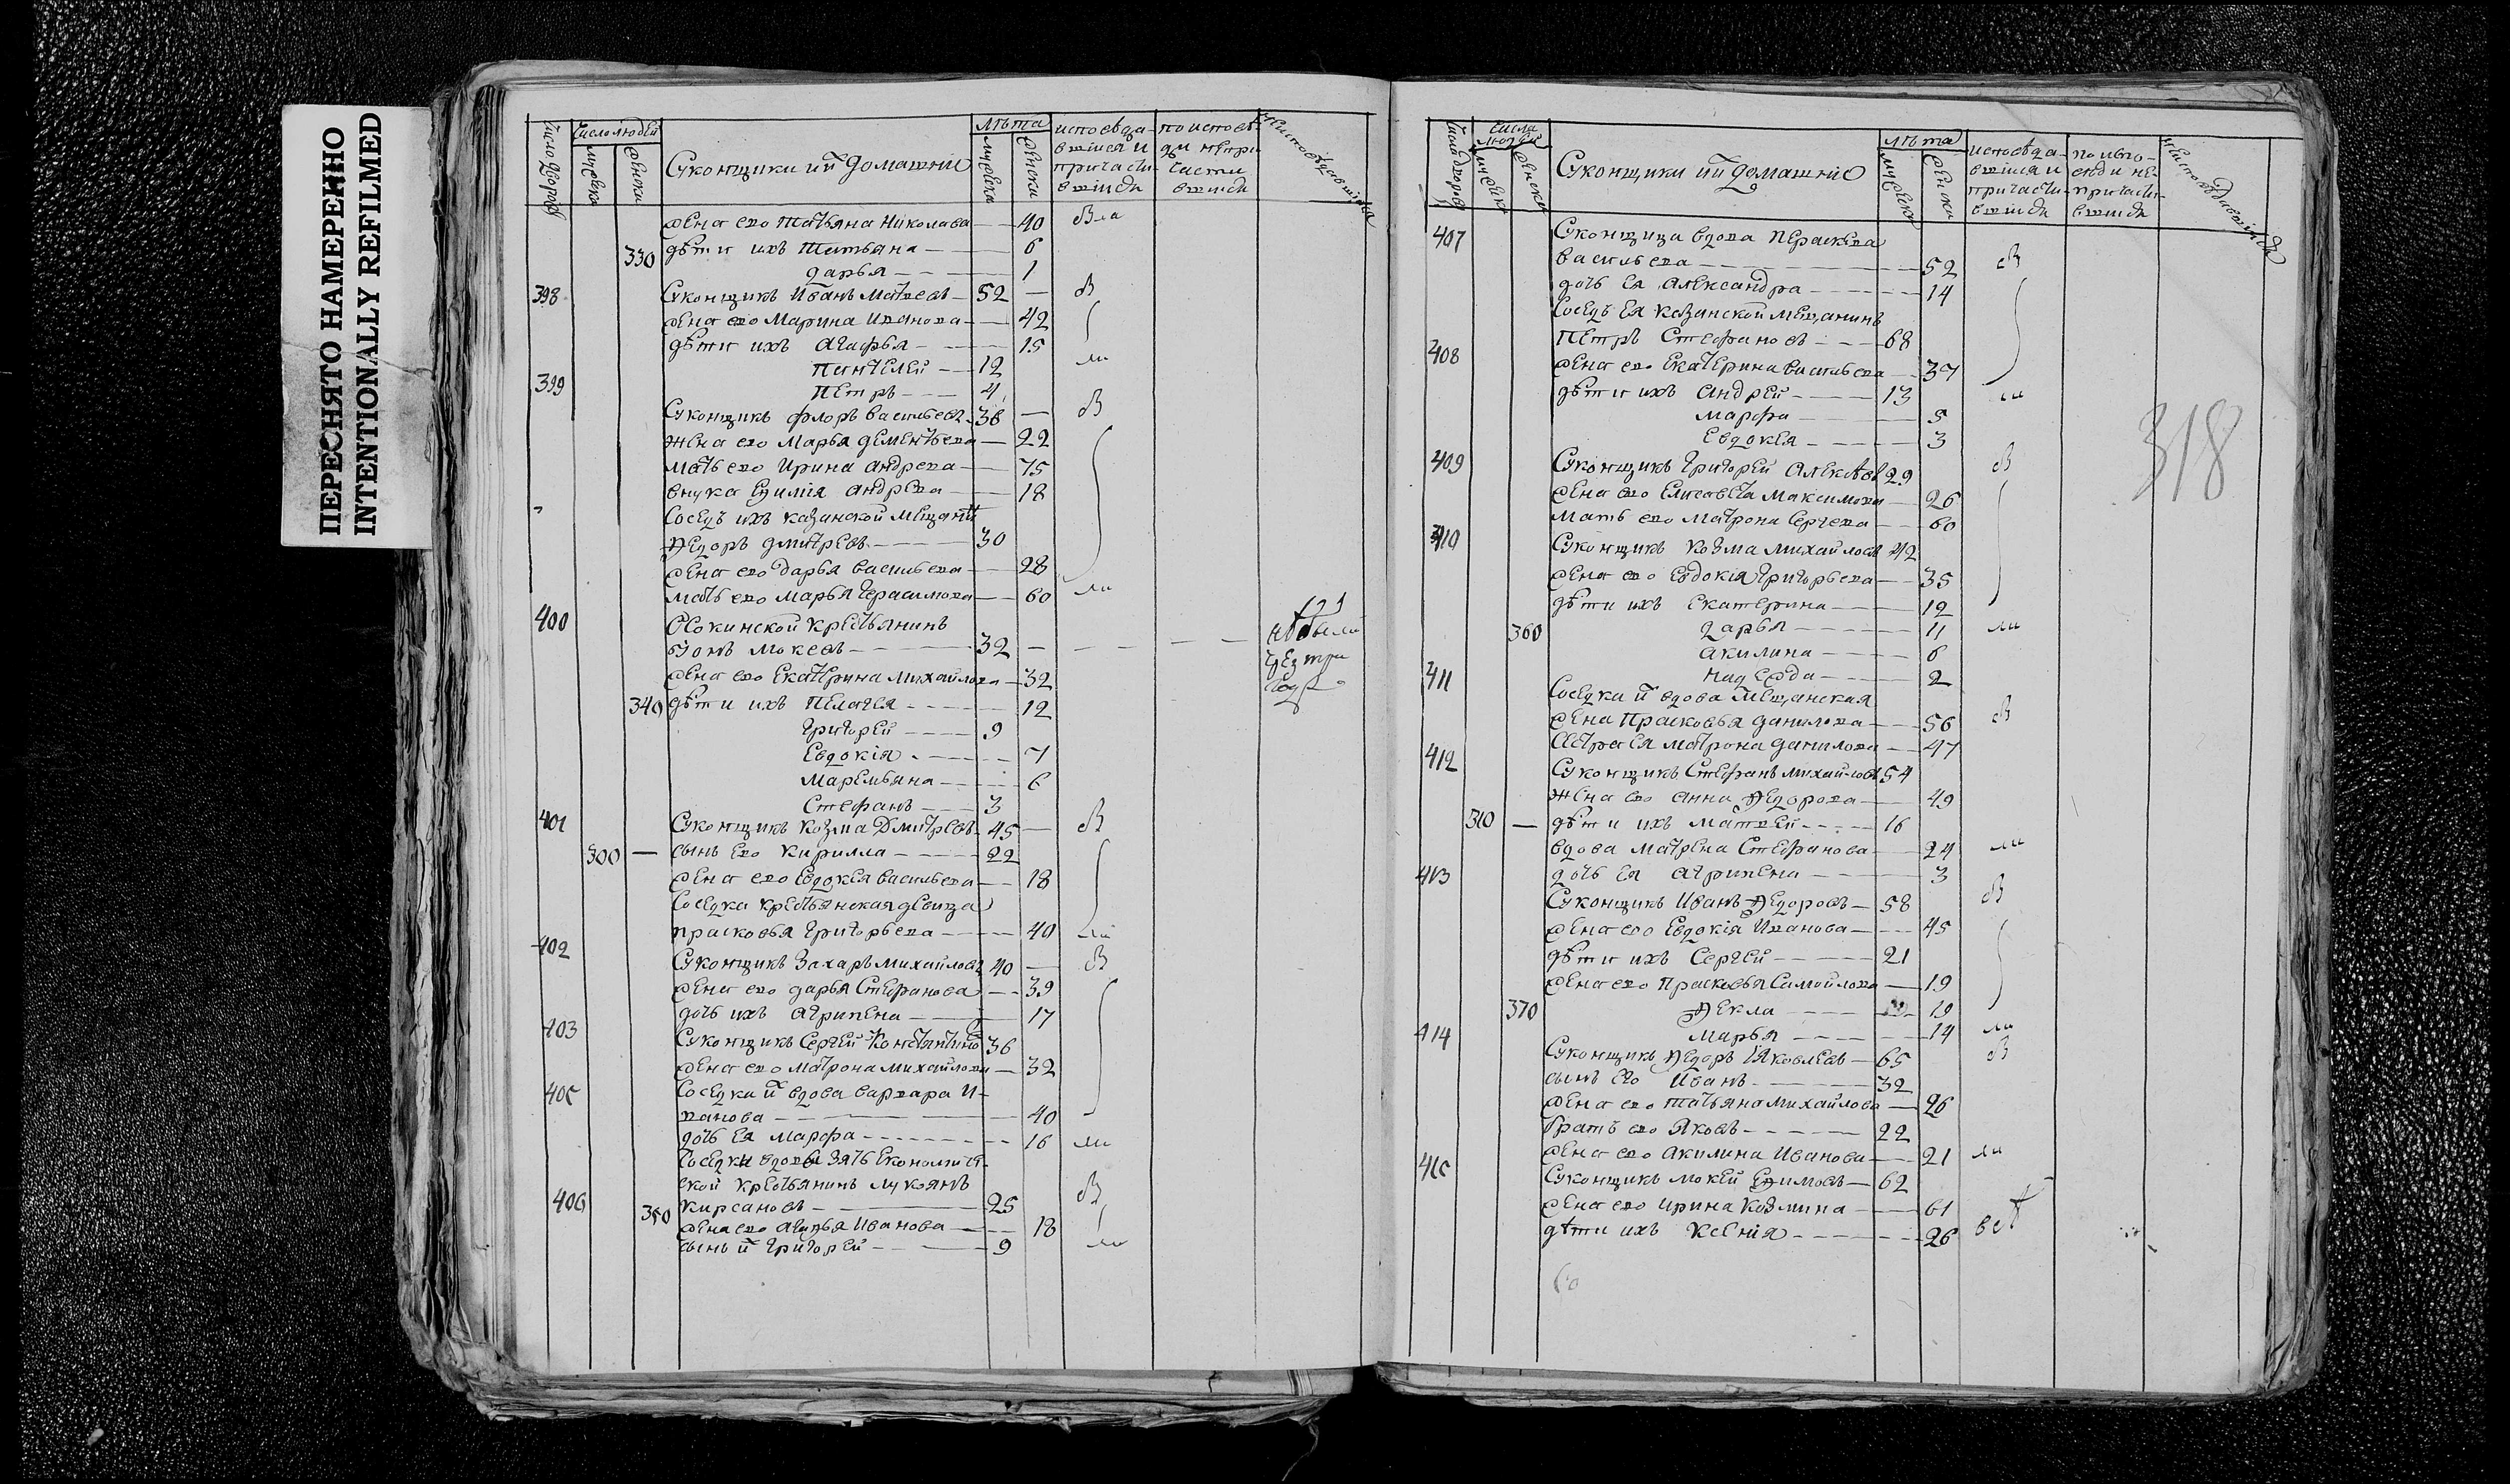 ПЕРЕСНЯТО НАМЕРЕННО
INTENTIONALLY REFILMED
Число дворовъ
Число людей
Мужеска
Женска
Суконщики и ихъ домашнии
Лѣта
Мужеска
Женска
исповѣда-
вшися и
причасти-
вшіися
по исповѣ-
ди непри-
части
вшіися
жена ево Татьяна Николаева — 40
330 дѣти ихъ Татьяна — 6
дарья — 1
398 Суконщикъ Иванъ Матвеевъ — 52
жена ево Марина Иванова — 42
дѣти ихъ Агафья — 15
Пантелей — 12
399 Петръ — 4
Суконщикъ флоръ васильевъ 36
жена ево Марья дементьева — 22
мать ево Ирина андреева — 75
внука андреева — 18
Соседъ ихъ казанской мещани
Ѳедоръ дмитревъ — 30
жена ево дарья васильева — 28
мать ево Марья Герасимова — 60
400 Осокинской крестьянинъ
мокеевъ — 32
жена ево Екатерина михайлова — 32
340 дѣти ихъ Пелагея — 12
Григорей — 9
Евдокія — 7
Маремьяна — 6
Стефанъ — 3
401 Суконщикъ козма Дмитревъ 45
300 — сынъ ево кирилла — 22
жена ево Евдокея васильева — 18
Соседка крестьянская девица
прасковья Григорьева — 40
402 Суконщикъ Захаръ михайловъ 40
жена ево дарья Стефанова — 39
дочь ихъ агрипена — 17
403 Суконщикъ Сергей Константинов 36
жена ево матрона михайлова — 32
405 Соседка их вдова варвара и-
ванова — 40
дочь ея марфа — 16
Соседки вдовы зять Економиче-
ской крестьянинъ лукоянъ
406 350 кирсановъ — 25
жена ево агафья Иванова — 18
сынъ их Григорей — 9
Число дворовъ
Числа людей
Мужеск
Женска
Суконщики и ихъ домашние
лѣта
Мужеска
Женска
исповѣда-
вшіися и
причасти-
вшіися
по испо-
веди не-
причасти-
вшіися
318
407 Суконщица вдова Параскева
васильева — 52
дочь ея Александра — 14
Соседъ ея казанской мещанинъ
Петръ Стефановъ — 68
408 жена ево Екатерина васильева — 37
дѣти ихъ Андрей — 13
марфа — 5
Евдокея — 3
409 Суконщикъ Григорей Алексѣевъ 29
жена ево Елисавета максимова — 26
мать ево матрона Сергеева — 60
410 Суконщикъ козма михайловъ 42
жена ево Евдокія Григорьева — 35
дѣти ихъ Екатерина — 12
360 дарья — 11
акилина — 6
надежда — 2
411 Соседка их вдова мещанская
жена Прасковья данилова — 56
Сестра ея матрона данилова — 47
412 Суконщикъ Стефанъ михайловъ 54
жена ево анна Ѳедорова — 49
310 — дѣти ихъ матвей — 16
вдова матрена Стефанова — 24
413 дочь ея агрипена — 3
Суконщикъ Иванъ Ѳедоровъ — 58
жена ево Евдокія Иванова — 45
дѣти ихъ Сергей — 21
жена ево Прасковья Самойлова — 19
370 Ѳекла — 19
414 Марья — 14
Суконщикъ Ѳедоръ Яковлевъ — 65
сынъ ево Иванъ — 32
жена ево татьяна михайлова — 26
братъ ево Яковъ — 22
жена ево акилина Иванова — 21
415 Суконщикъ мокей Ефимовъ — 62
жена ево ирина козмина — 61
дѣти ихъ Ксенія — 26